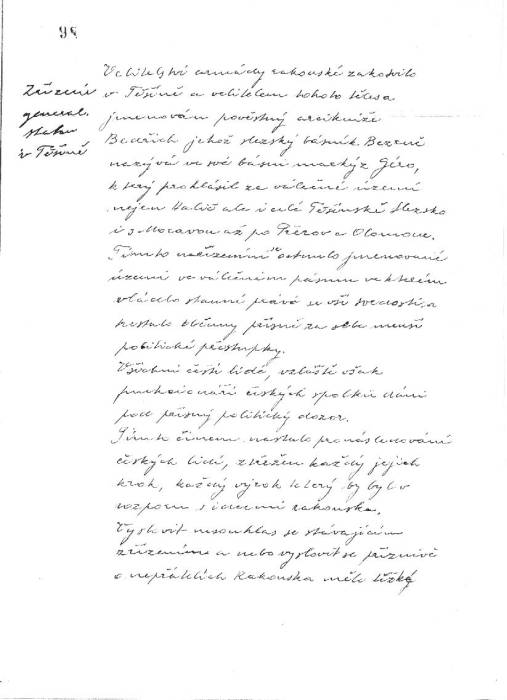 98
Zřízení
general.
štabu
v Těšíně
Velitelství armády rakouské zakotvilo
v Těšíně a velitelem tohoto tělesa
jmenován pověstný arcikníže
Bedřich jehož slezský básník Bezruč
nazývá ve své básni markýz Géro,
který prohlásil za válečné území
nejen Halič ale i celé Těšínské Slezsko
i s Moravou až po Přerov a Olomouc.
Tímto nařízením se octnulo jmenované
území ve válečném pásmu ve kterém
vládlo stanné právo se vší svedostí, a
trestalo občany přísně za sebe menší
politické přestupky.
Všichni čeští lidé, vzláště však
funkcionáři českých spolků dáni
pod přísný politický dozor.
Tímto činem nastalo pronásledování
českých lidí, střežen každý jejich
krok, každý výrok který by byl v
rozporu s ideami rakouska.
Vyslovit nesouhlas se stávajícím
zřízením a nebo vyslovit se příznivě
o nepřátelích Rakouska mělo těžký